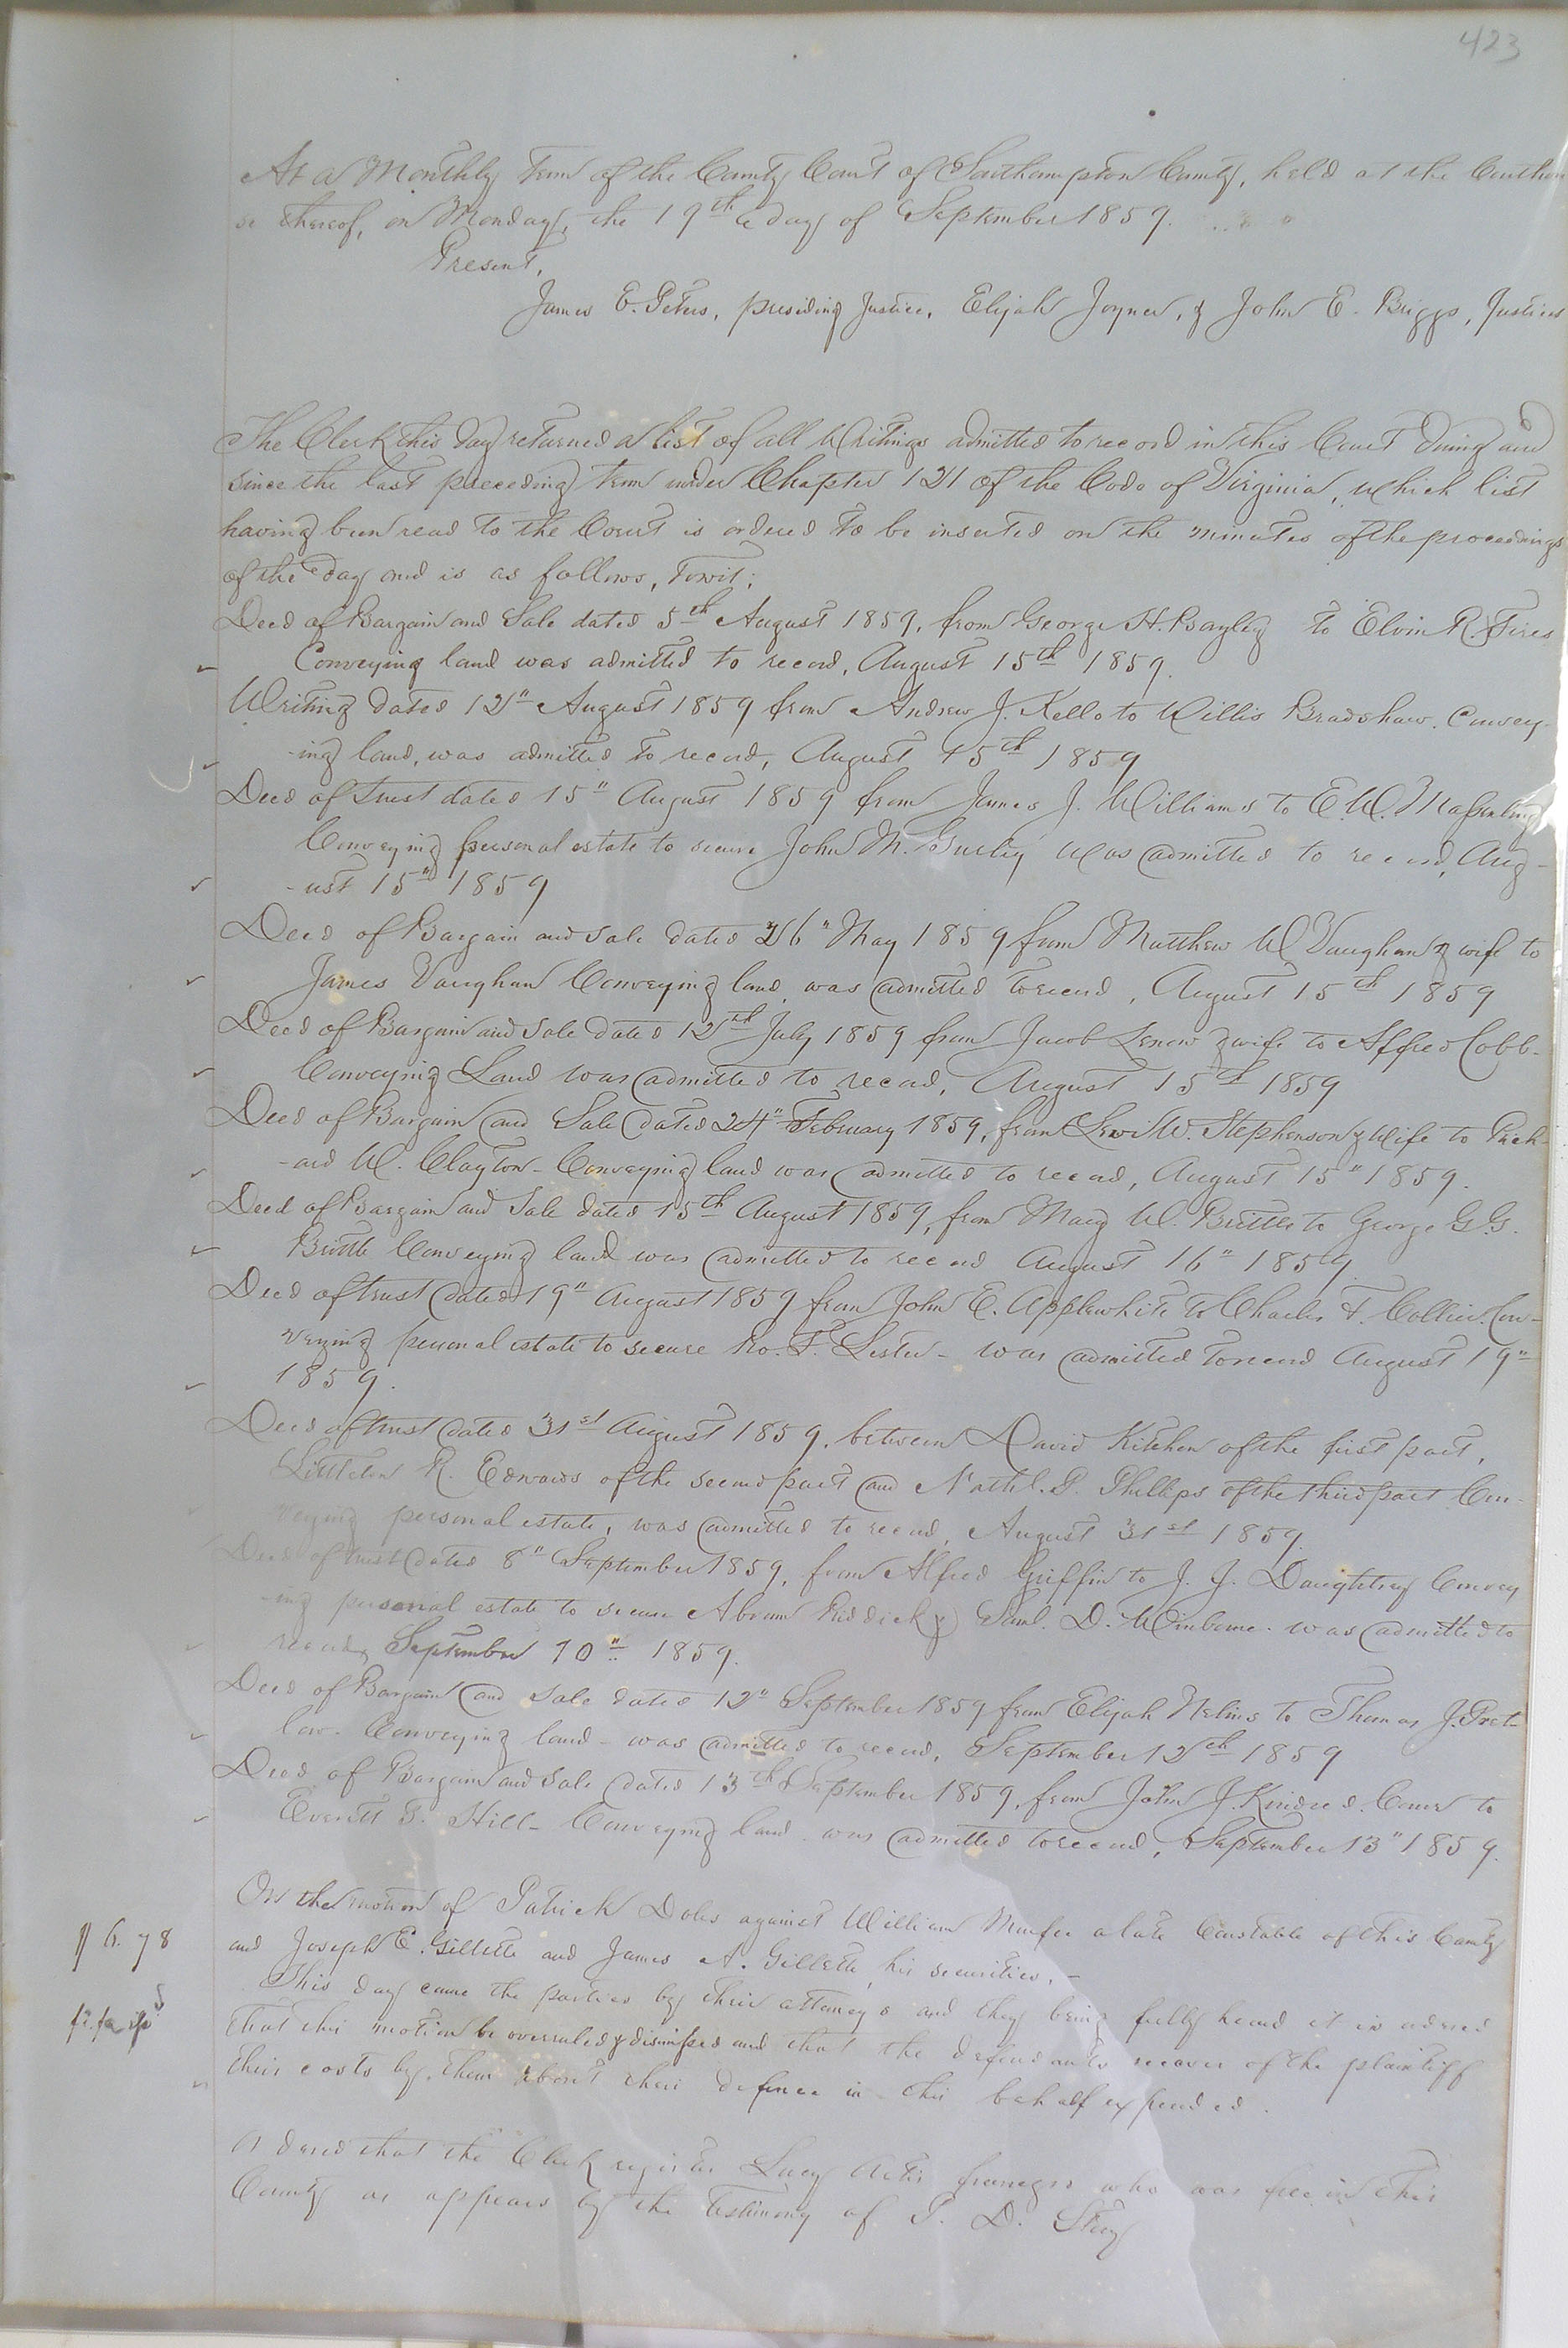 423
At a Monthly Term of the County Court of Southampton County, held at the Courthou
se thereof, on Monday, the 19th day of September 1859.
Present,
James E. Peters, presiding Justice, Elijah Joyner, & John E. Briggs, Justices
The Clerk this day returned a list of all Writings admitted to record in this Court during and
since the last preceeding term under Chapter 121 of the Code of Virginia, which list
having been read to the Court is ordered to be inserted on the minutes of the proceedings
of the day and is as follows, Towit;
Deed of Bargain and Sale dated 5th August 1859, from George H. Bayley to Elvin R.
Conveying land was admitted to record, August 15th 1859.
Writing dated 12" August 1859 from Andrew J. Kello to Willis Bradshaw. Convey-
-ing land, was admitted to record, August 15th 1859
Deed of trust dated 15" August 1859 from James J. Williams to E. W. Massenburg
Conveying personal estate to secure John M. Gurley was admitted to record, Aug-
-ust 15" 1859
Deed of Bargain and Sale dated 26" May 1859 from Matthew W Vaughan & wife to
James Vaughan Conveying land, was admitted to record, August 15th 1859
Deed of Bargain and Sale dated 12th July 1859 from Jacob Lenow & wife to Alfred Cobb-
Conveying Land was admitted to record, August 15th 1859
Deed of Bargain and Sale dated 24" February 1859, from Levi W. Stephenson & Wife to Rich-
-ard W. Clayton - Conveying land was admitted to record, August 15" 1859.
Deed of Bargain and Sale dated 15th August 1859, from Mary W. Brittle to George G. G.
Brittle Conveying land was admitted to record August 16" 1859
Deed of trust dated 19" August 1859 from John E. Applewhite to Charles F. Collier. Con-
veying personal estate to secure Ro. F. Lester - was admitted to record August 19"
1859.
Deed of trust dated 31st August 1859, between David Kitchen of the first part,
Littleton R. Edwards of the second part and Nathl. P. Phillips of the third part Con-
veying personal estate, was admitted to record, August 31st 1859.
Deed of trust dated 8" September 1859, from Alfred Griffin to J. J. Daughtrey Convey
-ing personal estate to secure Abram Riddick & Saml. D. Winborne. was admitted to
record, September 10" 1859.
Deed of Bargain and Sale dated 12" September 1859 from Elijah Nelms to Thomas J. Pret-
low. Conveying land - was admitted to record, September 12th 1859
Deed of Bargain and Sale dated 13th September 1859, from John J. Kindred. Comr to
Everett T. Hill - Conveying land was admitted to record, September 13" 1859.
On the motion of Patrick Doles against William Murfee a late Constable of this County
and Joseph E. Gillette and James A. Gillette, his securities. -
This day came the parties by their attorneys and they being fully heard it is ordered
that this motion be overruled & dismissed and that the defendants recover of the plaintiff
their costs by them about their defence in this behalf expended.
Ordered that the Clerk register Lucy Artis freenegro who was free in this
County as appears by the testimony of